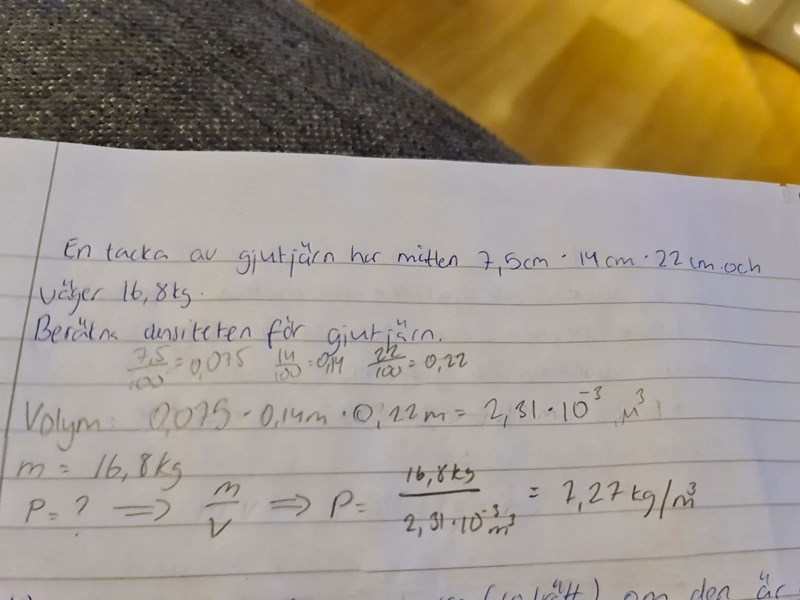 En tacka av gjutjärn har måtten 7,5cm · 14cm · 22cm och
väger 16,8kg.
Beräkna densiteten för gjutjärn.
7,5/100 = 0,075 14/100 = 0,14 22/100 = 0,22
Volym: 0,075 · 0,14m · 0,22m = 2,31 · 10⁻³ m³
m = 16,8kg
P = ? => m/V => P = 16,8kg / 2,31·10⁻³ m³ = 7,27 kg/m³
om den är